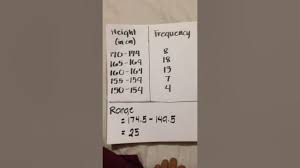 Height Frequency
(in cm)
170-174 8
165-169 18
160-164 13
155-159 7
150-154 4
Range
= 174.5 - 149.5
= 25